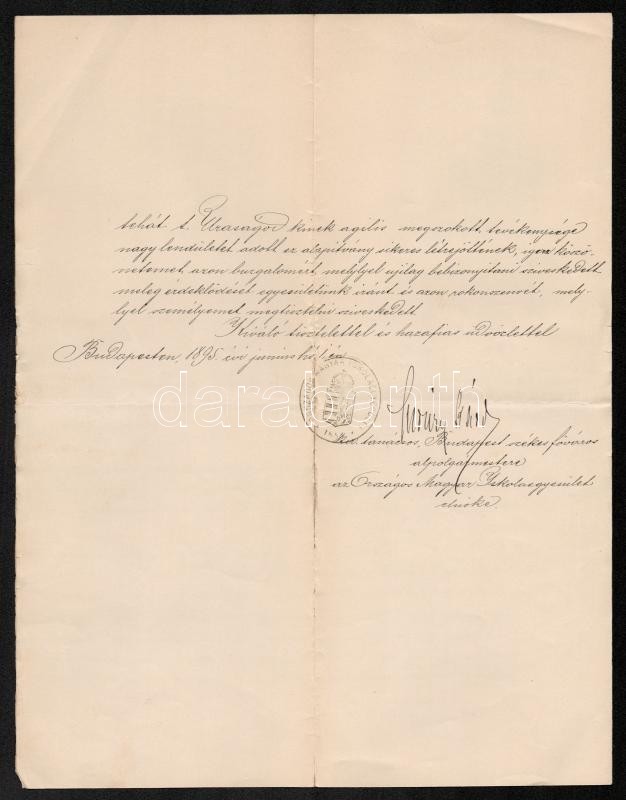 tehát t. Uraságod kinek agilis megszokott tevékenysége
nagy lendületet adott ez alapítvány sikeres létrejöttének, igaz köszö-
netemet azon buzgalomért, melylyel ujilag bebizonyitani sziveskedett
meleg érdeklődését egyesületünk iránt és azon rokonszenvét, mely-
lyel személyemet megtisztelni sziveskedett.
Kiváló tisztelettel és hazafias üdvözlettel
Budapesten, 1895. évi junius hó 1 én
Gerlóczy Károly
kir. tanácsos, Budapest székes főváros
alpolgármestere
az Országos Magyar Iskolaegyesület
elnöke.
darabanth